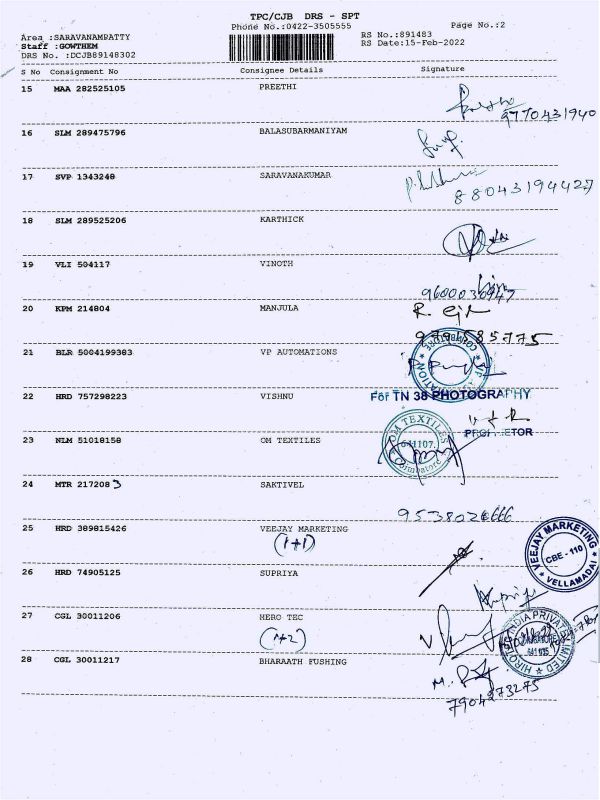 TPC/CJB DRS - SPT
Phone No.:0422-3505555
Page No.:2
Area :SARAVANAMPATTY
Staff :GOWTHEM
DRS No. :DCJB89148302
RS No.:891483
RS Date:15-Feb-2022
S No Consignment No Consignee Details Signature
15 MAA 282525105 PREETHI
9770431940
16 SLM 289475796 BALASUBARMANIYAM
17 SVP 1343248 SARAVANAKUMAR
88043194427
18 SLM 289525206 KARTHICK
19 VLI 504117 VINOTH
9600030947
20 KPM 214804 MANJULA
21 BLR 5004199383 VP AUTOMATIONS
22 HRD 757298223 VISHNU
For TN 38 PHOTOGRAPHY
23 NLM 51018158 OM TEXTILES
OM TEXTILES
641107.
Coimbatore
24 MTR 217208 3 SAKTIVEL
25 HRD 389815426 VEEJAY MARKETING
(1+1)
VEEJAY MARKETING
CBE - 110
VELLAMADAI
26 HRD 74905125 SUPRIYA
27 CGL 30011206 HERO TEC
(1+2)
28 CGL 30011217 BHARAATH FUSHING
7904273275